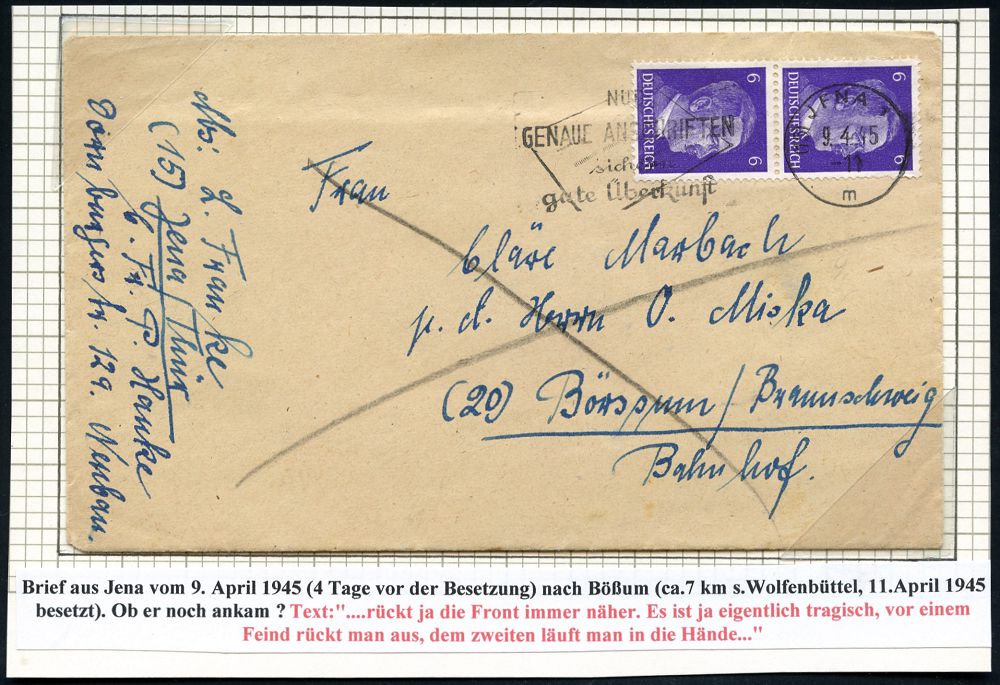 DEUTSCHES REICH
6
6
DEUTSCHES REICH
6
6
NUR
GENAUE ANSCHRIFTEN
sichern
gute Überkunft
JENA 1
9.4.45
-11
m
Abs: L. Franke
(15) Jena/Thür
b. Fr. P. Hanke
Dornburgerstr. 129. Neubau.
Frau
Cläre Marbach
p. A. Herrn O. Miska
(20) Börssum/Braunschweig
Bahnhof.
Brief aus Jena vom 9. April 1945 (4 Tage vor der Besetzung) nach Bößum (ca.7 km s.Wolfenbüttel, 11.April 1945
besetzt). Ob er noch ankam ? Text:"....rückt ja die Front immer näher. Es ist ja eigentlich tragisch, vor einem
Feind rückt man aus, dem zweiten läuft man in die Hände..."